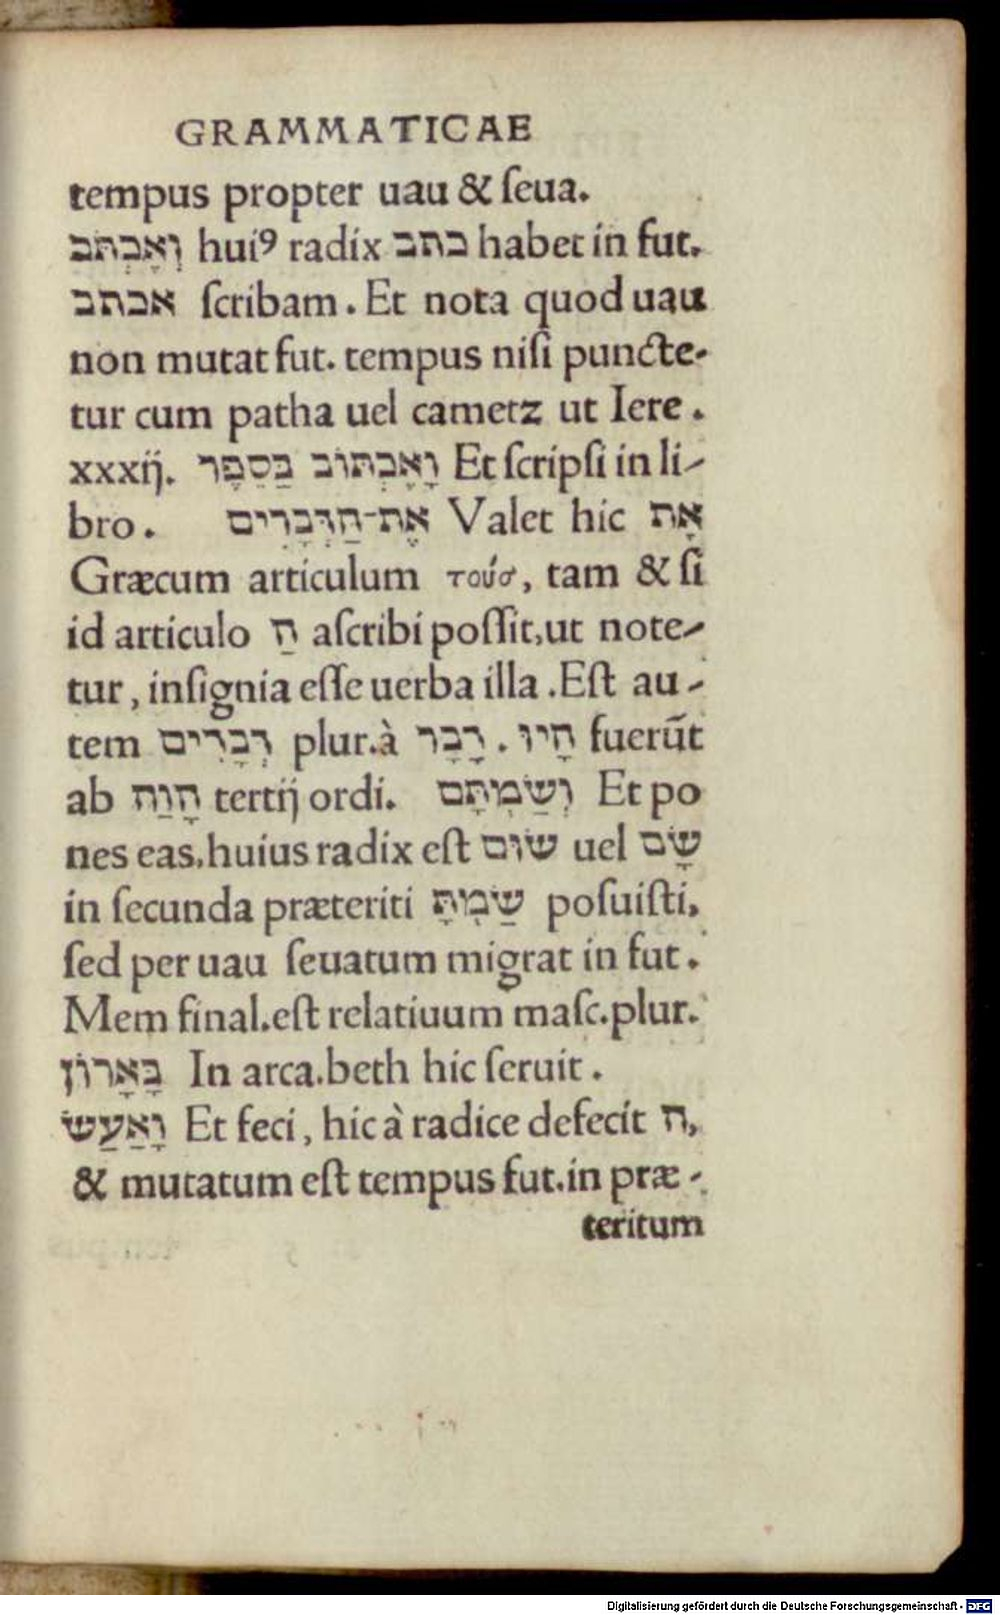 GRAMMATICAE
tempus propter uau & ſeua.
וְאֶכְתֹּב huiꝰ radix כתב habet in fut.
אכתב ſcribam. Et nota quod uau
non mutat fut. tempus niſi puncte-
tur cum patha uel cametz ut Iere.
xxxij. וָאֶכְתּוֹב בַּסֵּפֶר Et ſcripſi in li-
bro. אֶת־הַדְּבָרִים Valet hic אֶת
Græcum articulum τούσ, tam & ſi
id articulo הַ aſcribi poſſit, ut note-
tur, inſignia eſſe uerba illa. Eſt au-
tem דְּבָרִים plur. à דָּבָר. הָיוּ fuerūt
ab הָוַה tertij ordi. וְשַׂמְתָּם Et po
nes eas, huius radix eſt שׂוּם uel שָׂם
in ſecunda præteriti שַׂמְתָּ poſuiſti,
ſed per uau ſeuatum migrat in fut.
Mem final. eſt relatiuum maſc. plur.
בָּאָרוֹן In arca. beth hic ſeruit.
וָאַעַשׂ Et feci, hic à radice defecit ה,
& mutatum eſt tempus fut. in præ-
teritum
Digitalisierung gefördert durch die Deutsche Forschungsgemeinschaft - DFG